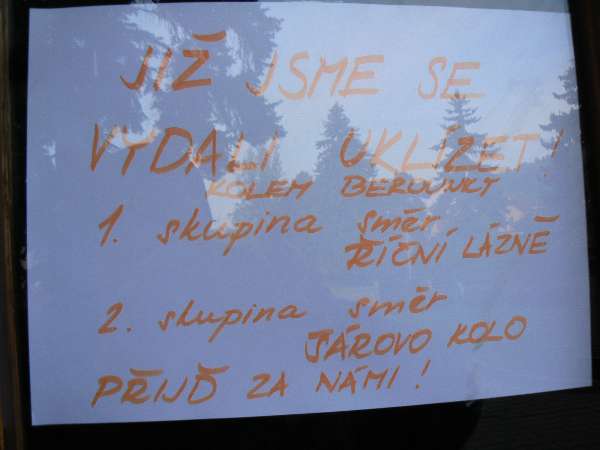 JIŽ JSME SE
VYDALI UKLÍZET!
KOLEM BEROUNKY
1. skupina směr
ŘÍČNÍ LÁZNĚ
2. skupina směr
JÁROVO KOLO
PŘIJĎ ZA NÁMI!